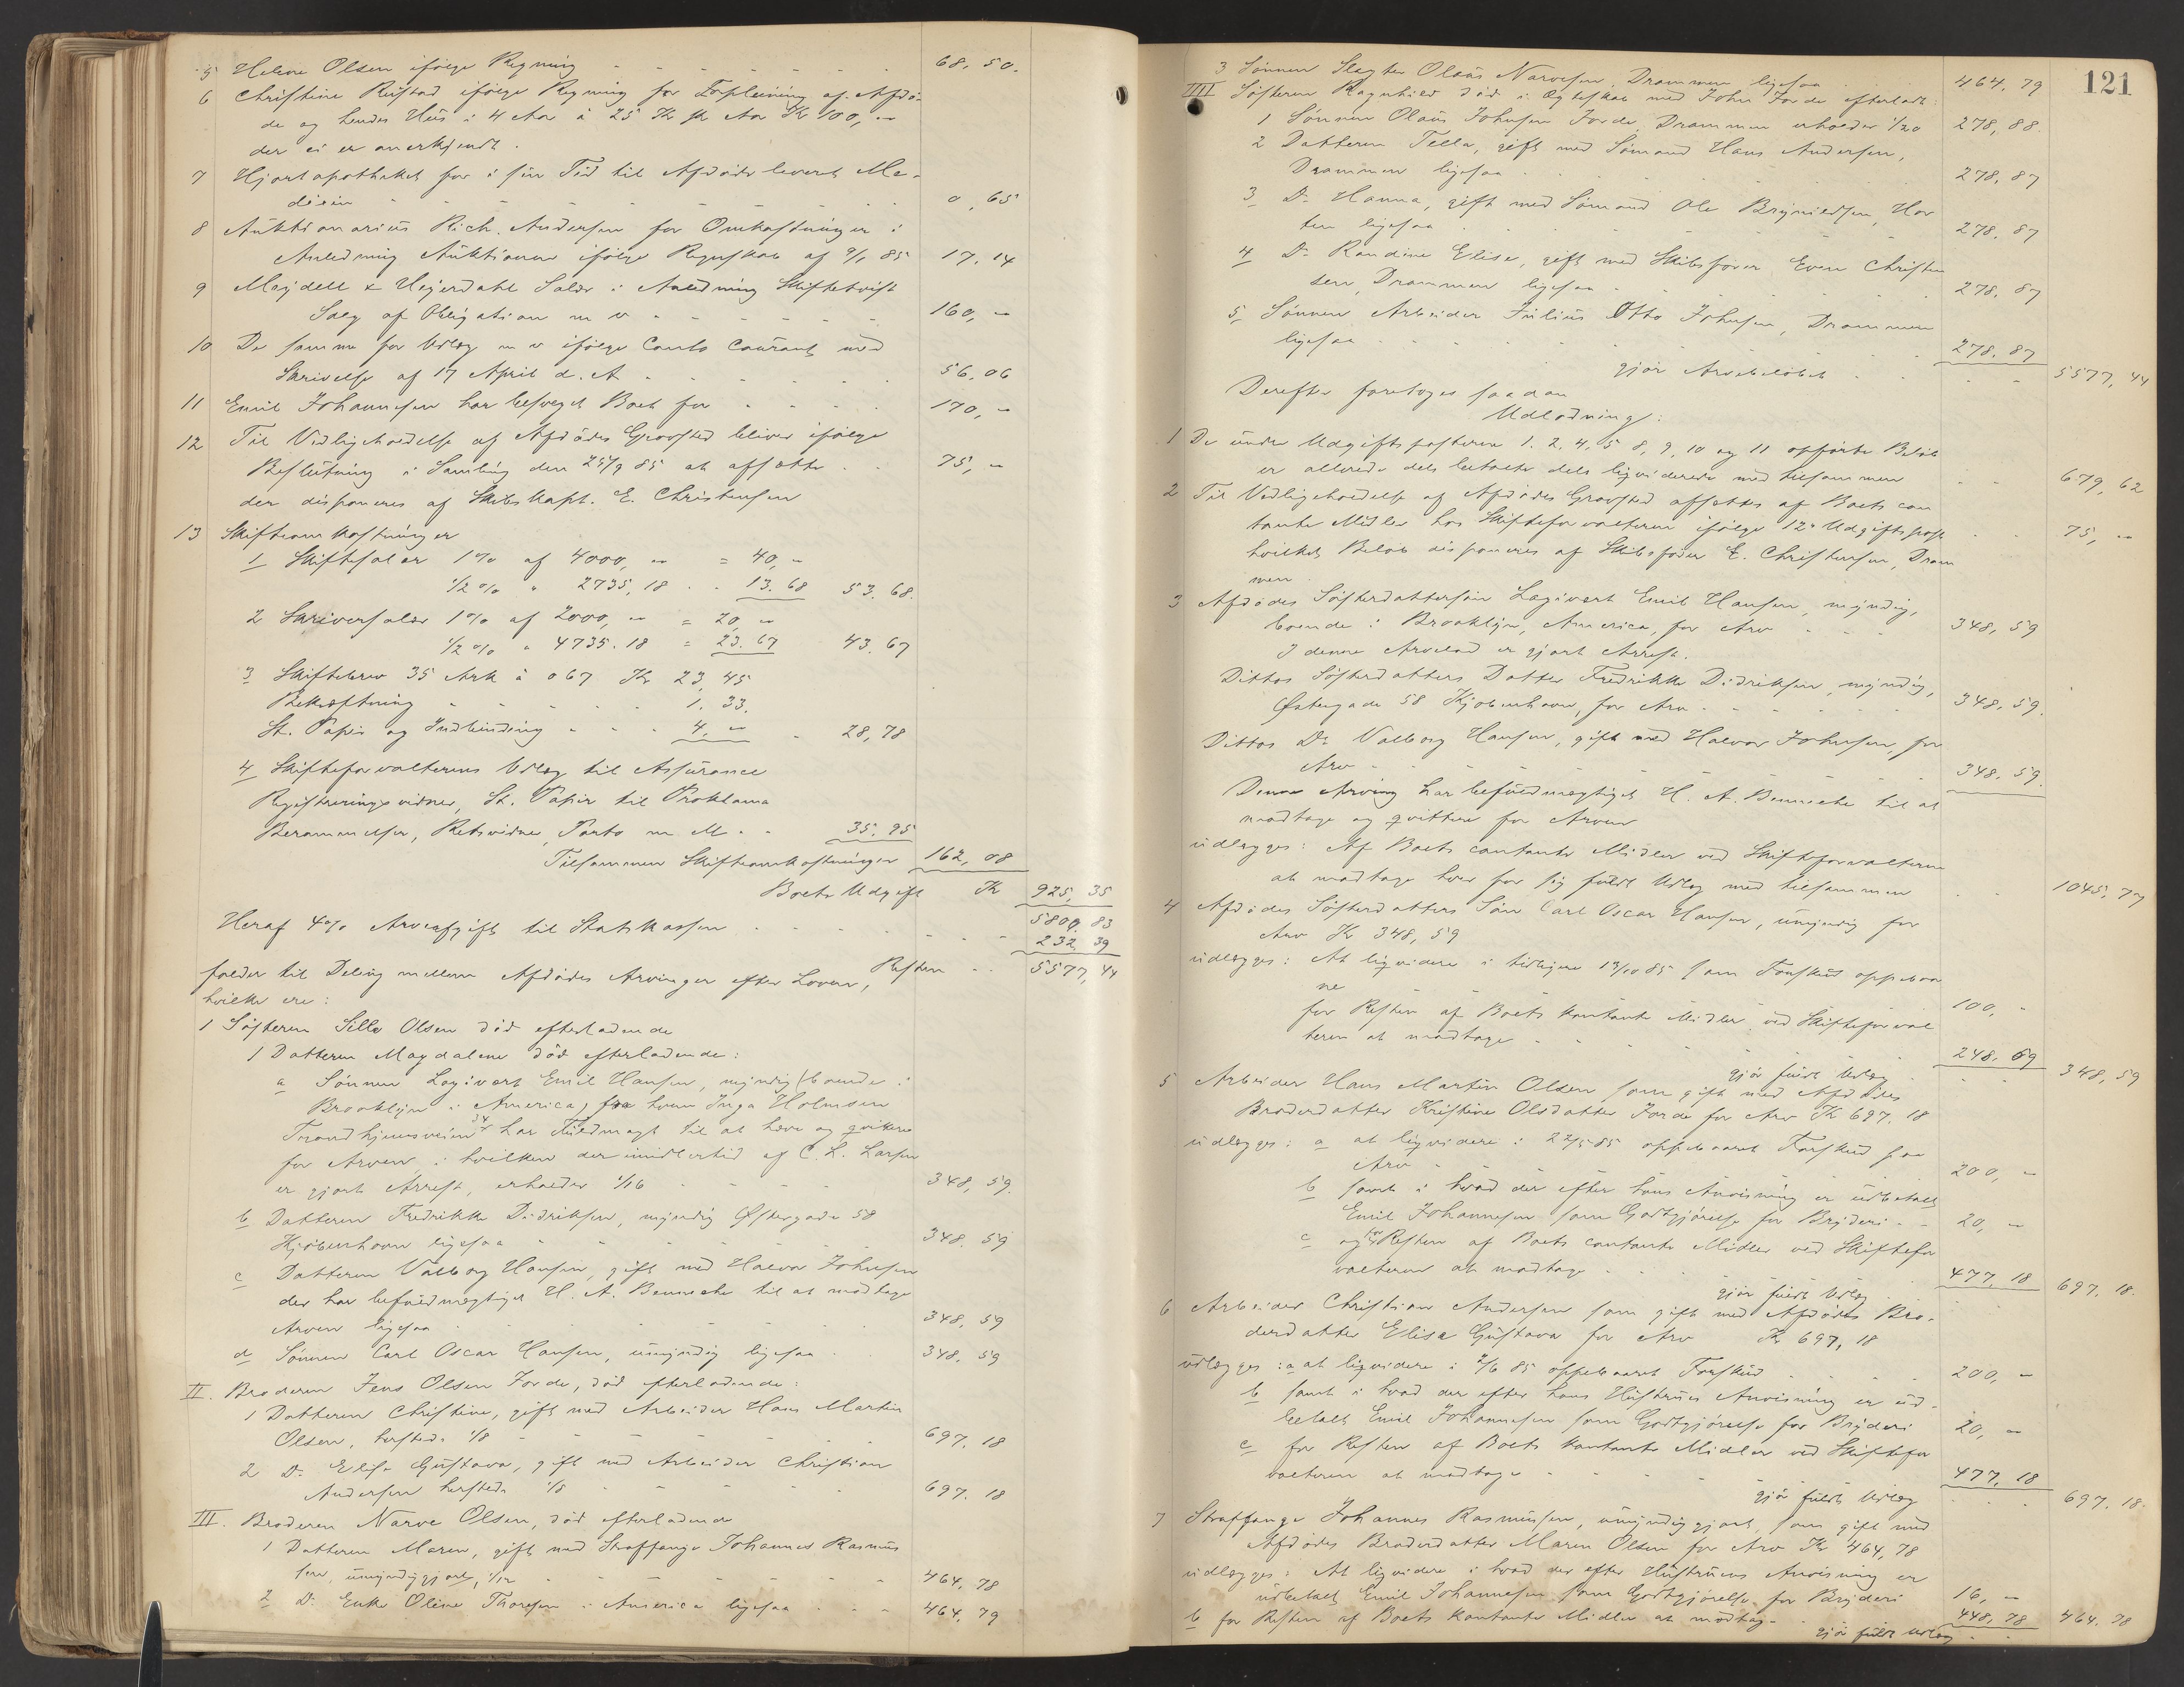 5 Helene Olsen ifølge Regning - - - - - - 68, 50.
6 Christine Rustad ifølge Regning for Forpleining af Afdø-
de og hendes Hus i 4 Aar à 25 Kr pr Aar Kr 100, -
der ei er anerkjendt.
7 Hjortapotheket for i sin Tid til Afdøde leveret Me-
dicin - - - - - - - 0, 65
8 Auktionarius Rich. Andersen for Omkostninger i
Anledning Auktionen ifølge Regnskab af 9/1 85 17, 14
9 Meydell & Hejerdahl Salær i Anledning Skiftetvist
Salg af Obligation m v - - - - - 160, -
10 De samme for Udlæg m v ifølge Conto Courant med
Skrivelse af 17 April d. A - - - - 56, 06
11 Emil Johannesen har besørget Boet for - - - 170, -
12 Til Vedligeholdelse af Afdødes Gravsted bliver ifølge
Beslutning i Samling den 25/9 85 at afsætte - - 75, -
der disponeres af Skibskapt. E. Christensen
13 Skifteomkostninger
1 Skiftesalær 1% af 4000, - = 40, -
1/2 % " 2735, 18 - - 13. 68 53. 68.
2 Skriversalær 1% af 2000, - = 20, -
1/2 % " 4735. 18 = 23. 67 43. 67
3 Skiftebrev 35 Ark à 0 67 Kr 23, 45
Bekræftning - - - - 1. 33.
St. Papir og Indbinding - - - 4, - - 28, 78
4 Skifteforvalterens Udlæg til Assurance
Registreringsvidner, St. Papir til Proklama
Berammelser, Retsvidner, Porto m. M - - 35. 95
Tilsammen Skifteomkostninger 162, 08
Boets Udgift Kr 925, 35
5809. 83
Heraf 4% Arveafgift til Statskassen - - - - - 232, 39
Resten - - 5577, 44
falder til Deling mellem Afdødes Arvinger efter Loven,
hvilke ere:
1 Søsteren Sille Olsen død efterladende
1 Datteren Magdalene død efterladende:
a Sønnen Logivert Emil Hansen, myndig (boende i
Brooklyn i America) for hvem Inga Holmsen
Trondhjemsveien 34 har Fuldmagt til at hæve og qvittere
for Arven, i hvilken der imidlertid af C. L. Larsen
er gjort Arrest, erholder 1/16 - - - - 348, 59.
b Datteren Fredrikke Didriksen, myndig Østergade 58
Kjøbenhavn ligesaa - - - - - - 348. 59
c Datteren Valborg Hansen, gift med Halvor Johnsen
der har befuldmægtiget H. A. Bennecke til at modtage
Arven ligesaa - - - - - - 348, 59
d Sønnen Carl Oscar Hansen, umyndig ligesaa - - 348, 59
II. Broderen Jens Olsen Jorde, død efterladende:
1 Datteren Christine, gift med Arbeider Hans Martin
Olsen, hersteds 1/8 - - - - - - 697. 18
2 Do Elise Gustava, gift med Arbeider Christian
Andersen hersteds 1/8 - - - - - 697. 18
III. Broderen Narve Olsen, død efterladende
1 Datteren Maren, gift med Straffange Johannes Rasmus
sen, umyndiggjort, 1/12 - - - - - - 464, 78
2 Do Enke Oline Thoresen i America ligesaa - - - 464. 79
121
3 Sønnen Slagter Olaus Narvesen, Drammen ligesaa - - 464, 79
IIII Søsteren Ragnhild død i Ægteskab med John Jorde efterladt:
1 Sønnen Olaus Johnsen Jorde, Drammen erholder 1/20 278, 88.
2 Datteren Tella, gift med Sømand Hans Andersen,
Drammen ligesaa - - - - - - 278, 87
3 Do Hanna, gift med Sømand Ole Brynildsen, Hor
ten ligesaa - - - - - - 278. 87
4 Do Randine Elise, gift med Skibsfører Even Christen
sen, Drammen ligesaa - - - - - 278. 87
5 Sønnen Arbeider Julius Otto Johnsen, Drammen
ligesaa - - - - - - 278. 87
gjør Arvebeløbet - - - - 5577, 44
Derefter foretoges saadan
Udlodning:
1 De under Udgiftsposterne 1. 2. 4, 5 8, 9, 10 og 11 opførte Beløb
er allerede dels betalte dels ligviderede med tilsammen - - 679, 62
2 Til Vedligeholdelse af Afdødes Gravsted afsættes af Boets con
tante Midler hos Skifteforvalteren ifølge 12te Udgiftspost - - 75, -
hvilket Beløb disponeres af Skibsfører E. Christensen, Dram
men.
3 Afdødes Søsterdattersøn Logivert Emil Hansen, myndig,
boende i Brooklyn, America, for Arv - - - 348, 59
I denne Arvelod er gjort Arrest.
Dittos Søsterdatters Datter Fredrikke Didriksen, myndig,
Østergade 58 Kjøbenhavn, for Arv - - - - - 348. 59.
Dittos Do Valborg Hansen, gift med Halvor Johnsen, for
Arv - - - - - - - 348. 59.
Denne Arving har befuldmægtiget H. A. Bennecke til at
modtage og qvittere for Arven
udlægges: Af Boets contante Midler ved Skifteforvalteren
at modtage hver for sig fuldt Udlæg med tilsammen - - 1045, 77
4 Afdødes Søsterdatters Søn Carl Oscar Hansen, umyndig for
Arv Kr 348, 59
udlægges: At ligvidere i tidligere 13/10 85 som Forskud oppebaar
ne 100, -
for Resten af Boets kontante Midler ved Skifteforval
teren at modtage - - - - - 248. 59
gjør fuldt Udlæg - - - 348, 59
5 Arbeider Hans Martin Olsen som gift med Afdødes
Broderdatter Kristine Olsdatter Jorde for Arv Kr 697. 18
udlægges: a at ligvidere i 22/5 85 oppebaaret Forskud paa
Arv - - - - - - 200, -
b samt i hvad der efter hans Anvisning er udbetalt
Emil Johannesen som Godtgjørelse for Bryderi - - 20, -
c og for Resten af Boets contante Midler ved Skiftefor
valteren at modtage - - - - - 477, 18
gjør fuldt Udlæg - - - 697. 18.
6 Arbeider Christian Andersen som gift med Afdødes Bro-
derdatter Elise Gustava for Arv Kr 697, 18
udlægges: a at ligvidere i 2/6 85 oppebaaret Forskud - - - 200, -
b samt i hvad der efter hans Hustrues Anvisning er ud-
betalt Emil Johannesen som Godtgjørelse for Bryderi 20, -
c for Resten af Boets kontante Midler ved Skiftefor
valteren at modtage - - - - - 477, 18
gjør fuldt Udlæg - - - 697. 18.
7 Straffange Johannes Rasmussen, umyndiggjort, som gift med
Afdødes Broderdatter Maren Olsen for Arv Kr 464, 78
udlægges: At ligvidere i hvad der efter Hustruens Anvisning er
udbetalt Emil Johannesen som Godtgjørelse for Bryderi 16, -
b for Resten af Boets kontante Midler at modtage - 448, 78 464. 78
gjør fuldt Udlæg - -